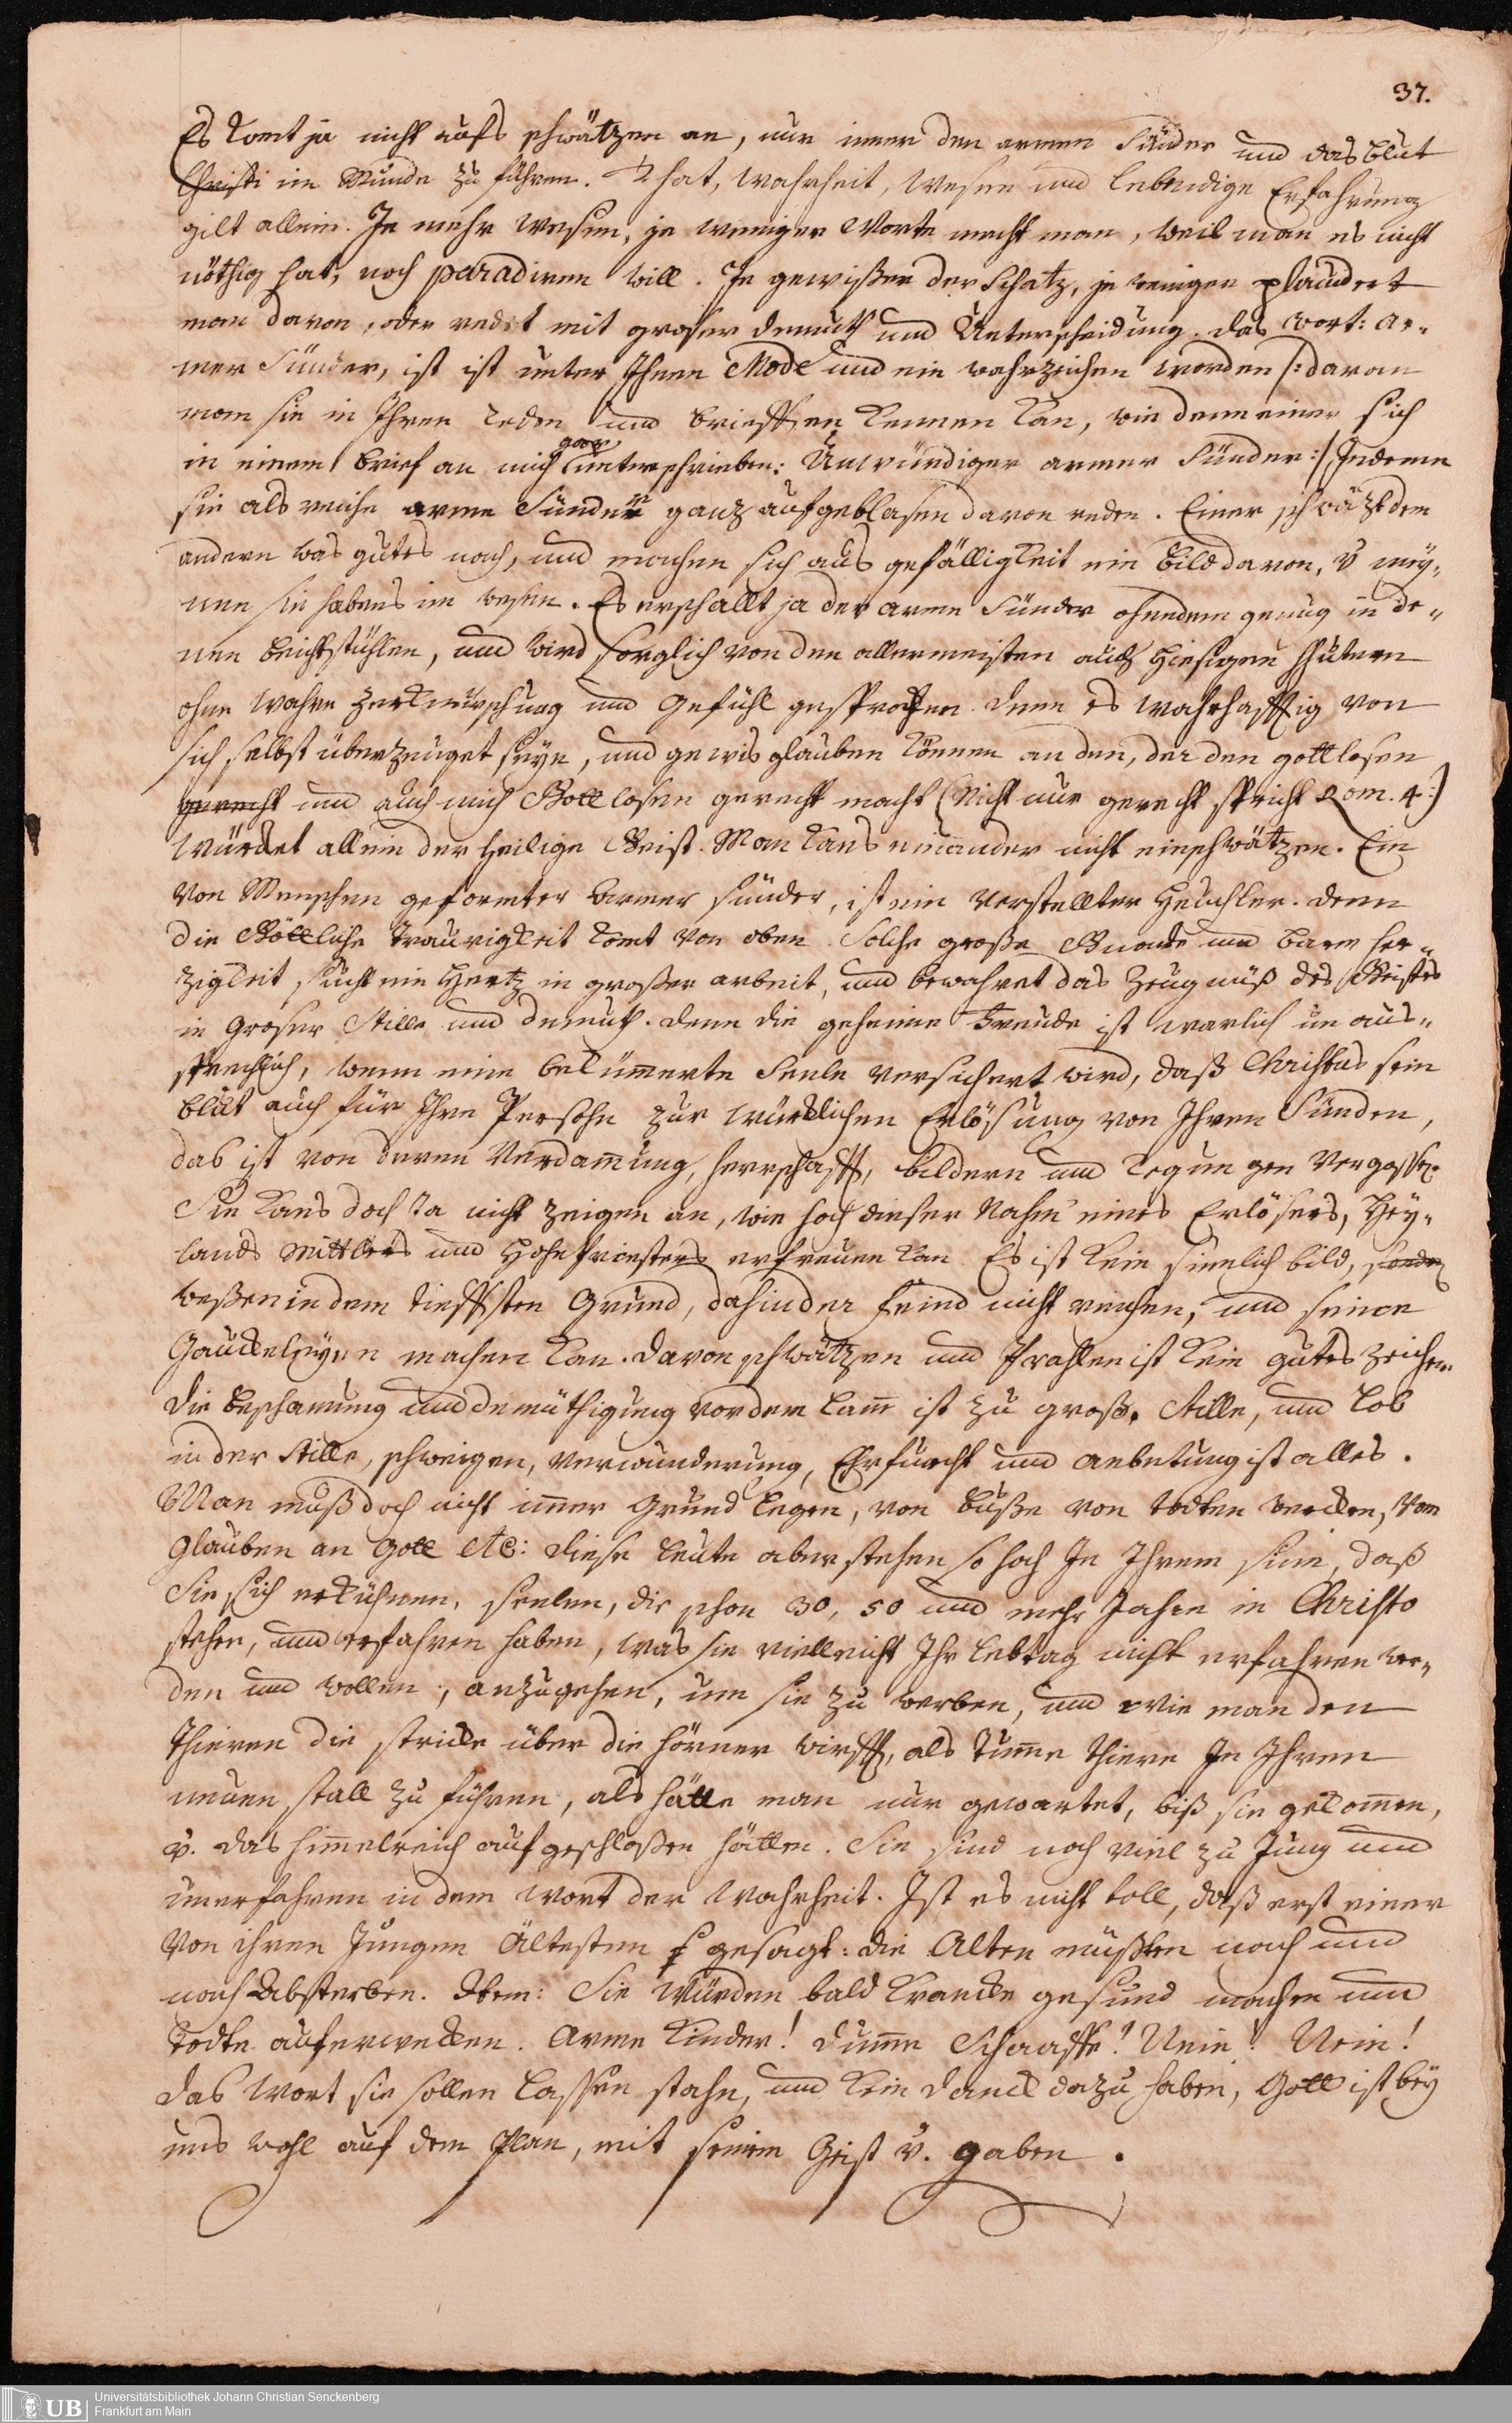 37.
Es komt ja nicht aufs schwätzen an, nur imer den armen Sünder und das blut
Christi im Munde zu führen. That, Wahrheit, Wesen und lebendige Erfahrung
gilt allein. Je mehr Wesen, je weniger Worte macht man, weil man es nicht
nöthig hat, noch paradiren will. Je gewißer der Schatz, je weniger plaudert
man davon, oder redet mit groser demuth und Unterscheidung. das wort: ar-
mer Sünder, ist ist unter Ihnen Mode und ein wahrzeichen worden /: daran
man sie in Ihren reden und brieffen kennen kan, wie denn einer sich
in einem brief an mich gar unterschrieben: Unwürdiger armer Sünder :/ Indeme
sie als reiche arme Sünder ganz aufgeblasen davon reden. Einer schwäzt dem
andern was gutes nach, und machen sich aus gefälligkeit ein bild davon, v mey-
nen sie habens im wesen. Es erschallt ja der arme Sünder ohndem genug in de-
nen beichtstühlen, und wird sorglich von den allermeisten auch hiesigen
ohne wahre zerknirschung und Gefühl gesprochen. denn es wahrhafftig von
sich selbst überzeuget seye, und gewis glauben können an den, der den gottlosen
gerecht und auch mich Gottlosen gerecht macht (Nicht nur gerecht spricht Rom. 4:)
würcket allein der heilige Geist. Man kans einander nicht einschwätzen. Ein
von Menschen geformter armer sünder, ist ein verstellter Heuchler. denn
die Göttliche traurigkeit komt von oben. Solche große Gnade und barmher-
zigkeit sucht ein Hertz in großer arbeit, und bewahret das Zeugnüß des Geistes
in Groser Stille und demuth. denn die geheime Freude ist warlich unaus-
sprechlich, wenn eine bekümmerte Seele versichert wird, daß Christus sein
blut auch für Ihre Persohn zur würcklichen Erlösung von Ihren Sünden,
das ist von deren Verdamung, herrschafft, bildern und Regungen vergossen.
Sie kans doch ja nicht zeigen an, wie hoch dieser Nahm eines Erlösers, Hey-
lands Mittlers und Hohepriesters erfreuen kan. Es ist kein sinnlich bild, sondern
weßen in dem tieffsten Grund, dahin der feind nicht reichen, und seine
Gauckeleyen machen kan. davon schwätzen und prahlen ist kein gutes zeichen.
die beschamung und demüthigung vor dem Lamm ist zu groß. Stille, und Lob
in der Stille, schweigen, verwunderung, Ehrfurcht und anbetung ist alles.
Man muß doch nicht immer Grund legen, von buße von todten wercken, vom
Glauben an Gott etc: diese leute aber stehen so hoch In Ihrem sinn, daß
Sie sich erkühnen, seelen, die schon 30, 50 und mehr Jahre in Christo
stehen, und erfahren haben, was sie vielleicht Ihr lebtag nicht erfahren wer-
den und wollen, anzugehen, um sie zu werben, und wie man den
thieren die stricke über die hörner wirfft, als dumme thiere In Ihren
neuen stall zu führen, als hätte man nur gewartet, biß sie gekommen,
v. das himmelreich aufgeschloßen hätten. Sie sind noch viel zu Jung und
unerfahren in dem Wort der Wahrheit. Ist es nicht toll, daß erst einer
von ihren Jungen Ältesten gesagt: die Alten müßten nach und
nach Absterben. Item: Sie würden bald krancke gesund machen und
todte auferwecken. Arme kinder! dumme Schaaffe! Nein! Nein!
das Wort sie sollen lassen stahn, und kein danck dazu haben, Gott ist bey
uns wohl auf dem plan, mit seinem Geist v. gaben.
UB
Universitätsbibliothek Johann Christian Senckenberg
Frankfurt am Main